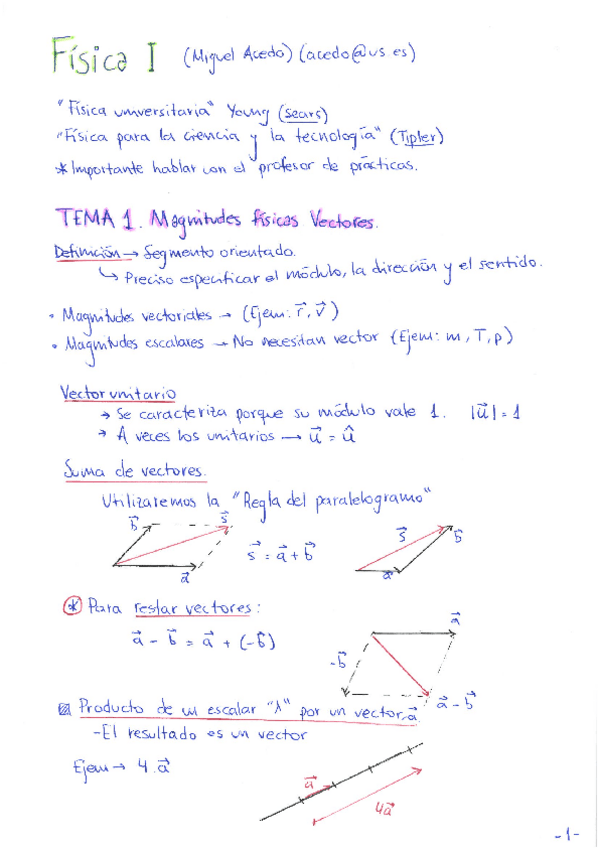 Física I (Miguel Acedo) (acedo@us.es)
"Física universitaria" Young (Sears)
"Física para la ciencia y la tecnología" (Tipler)
* Importante hablar con el profesor de prácticas.
TEMA 1. Magnitudes físicas Vectores.
Definición → Segmento orientado.
↳ Preciso especificar el módulo, la dirección y el sentido.
• Magnitudes vectoriales → (Ejem: r⃗, v⃗)
• Magnitudes escalares → No necesitan vector (Ejem: m, T, p)
Vector unitario
→ Se caracteriza porque su módulo vale 1. |u⃗| = 1
→ A veces los unitarios → u⃗ = û
Suma de vectores.
Utilizaremos la "Regla del paralelogramo"
b⃗ s⃗ a⃗ s⃗ = a⃗ + b⃗ s⃗ b⃗ a⃗
* Para restar vectores:
a⃗ - b⃗ = a⃗ + (-b⃗)
a⃗ -b⃗ a⃗ - b⃗
Producto de un escalar "λ" por un vector, a⃗
- El resultado es un vector
Ejem → 4·a⃗
a⃗ 4a⃗
-1-